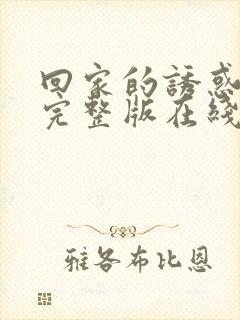 回家的誘惑
完整版在綫
雅各布比恩